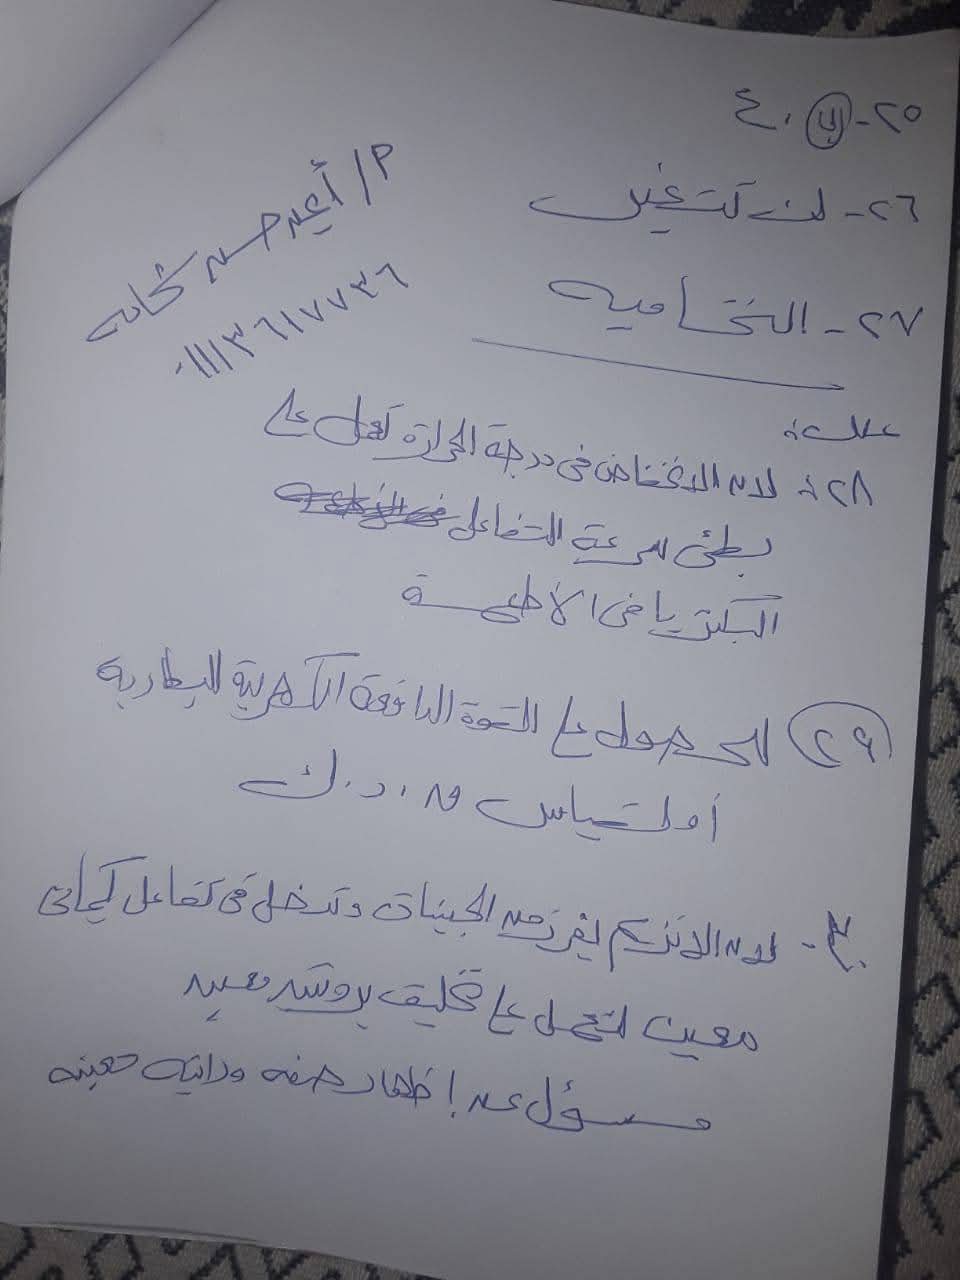 ٢٥- (ب) ٤٠
٢٦- لن تتغير
٢٧- النخاميه
م/ أعيد حسن شحاته
٠١١١٣٦١٧٧٣٦
علل:
٢٨: لان الانخفاض في درجة الحرارة تعمل على
بطئ سرعة التفاعل
البكتريا في الأطعمة
٢٩ للحصول على القوة الدافعة الكهربية للبطارية
أو لقياس ق.د.ك
٣٠- لان الانزيم يفرز من الجينات وتدخل في تفاعل كيميائى
معين لتعمل على تخليق بروتين معين
مسؤل عن إظهار صفه وراثيه معينه